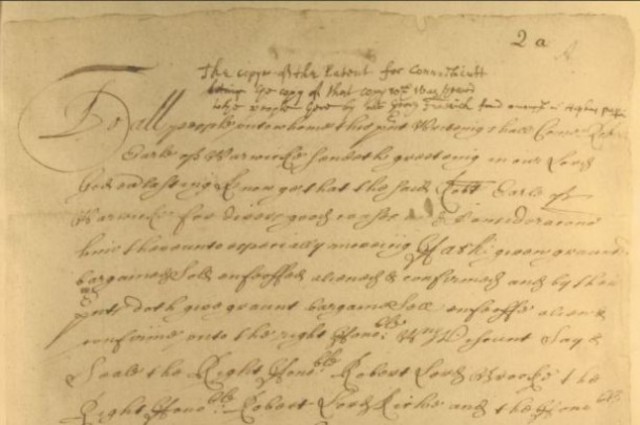 2 a
The copye of the Patent for Connecticutt
being ye copy of that
To all people unto whome this pnt Writeing shall Come Robert
Earle of Warwicke sendeth greeting in our Lord
God everlasting Know ye that the said Robt Earle of
Warwicke for divers good causes & Considerations
him thereunto especially moveing Hath given graunted
bargained Sold enfeoffed aliened & confirmed and by these
pnts doth give graunt bargaine Sell enfeoffe aliene &
confirme unto the right Honoble Wm Viscount Say &
Seale the Right Honoble Robert Lord Brooke the
Right Honoble Robert Lord Riche and the Honoble